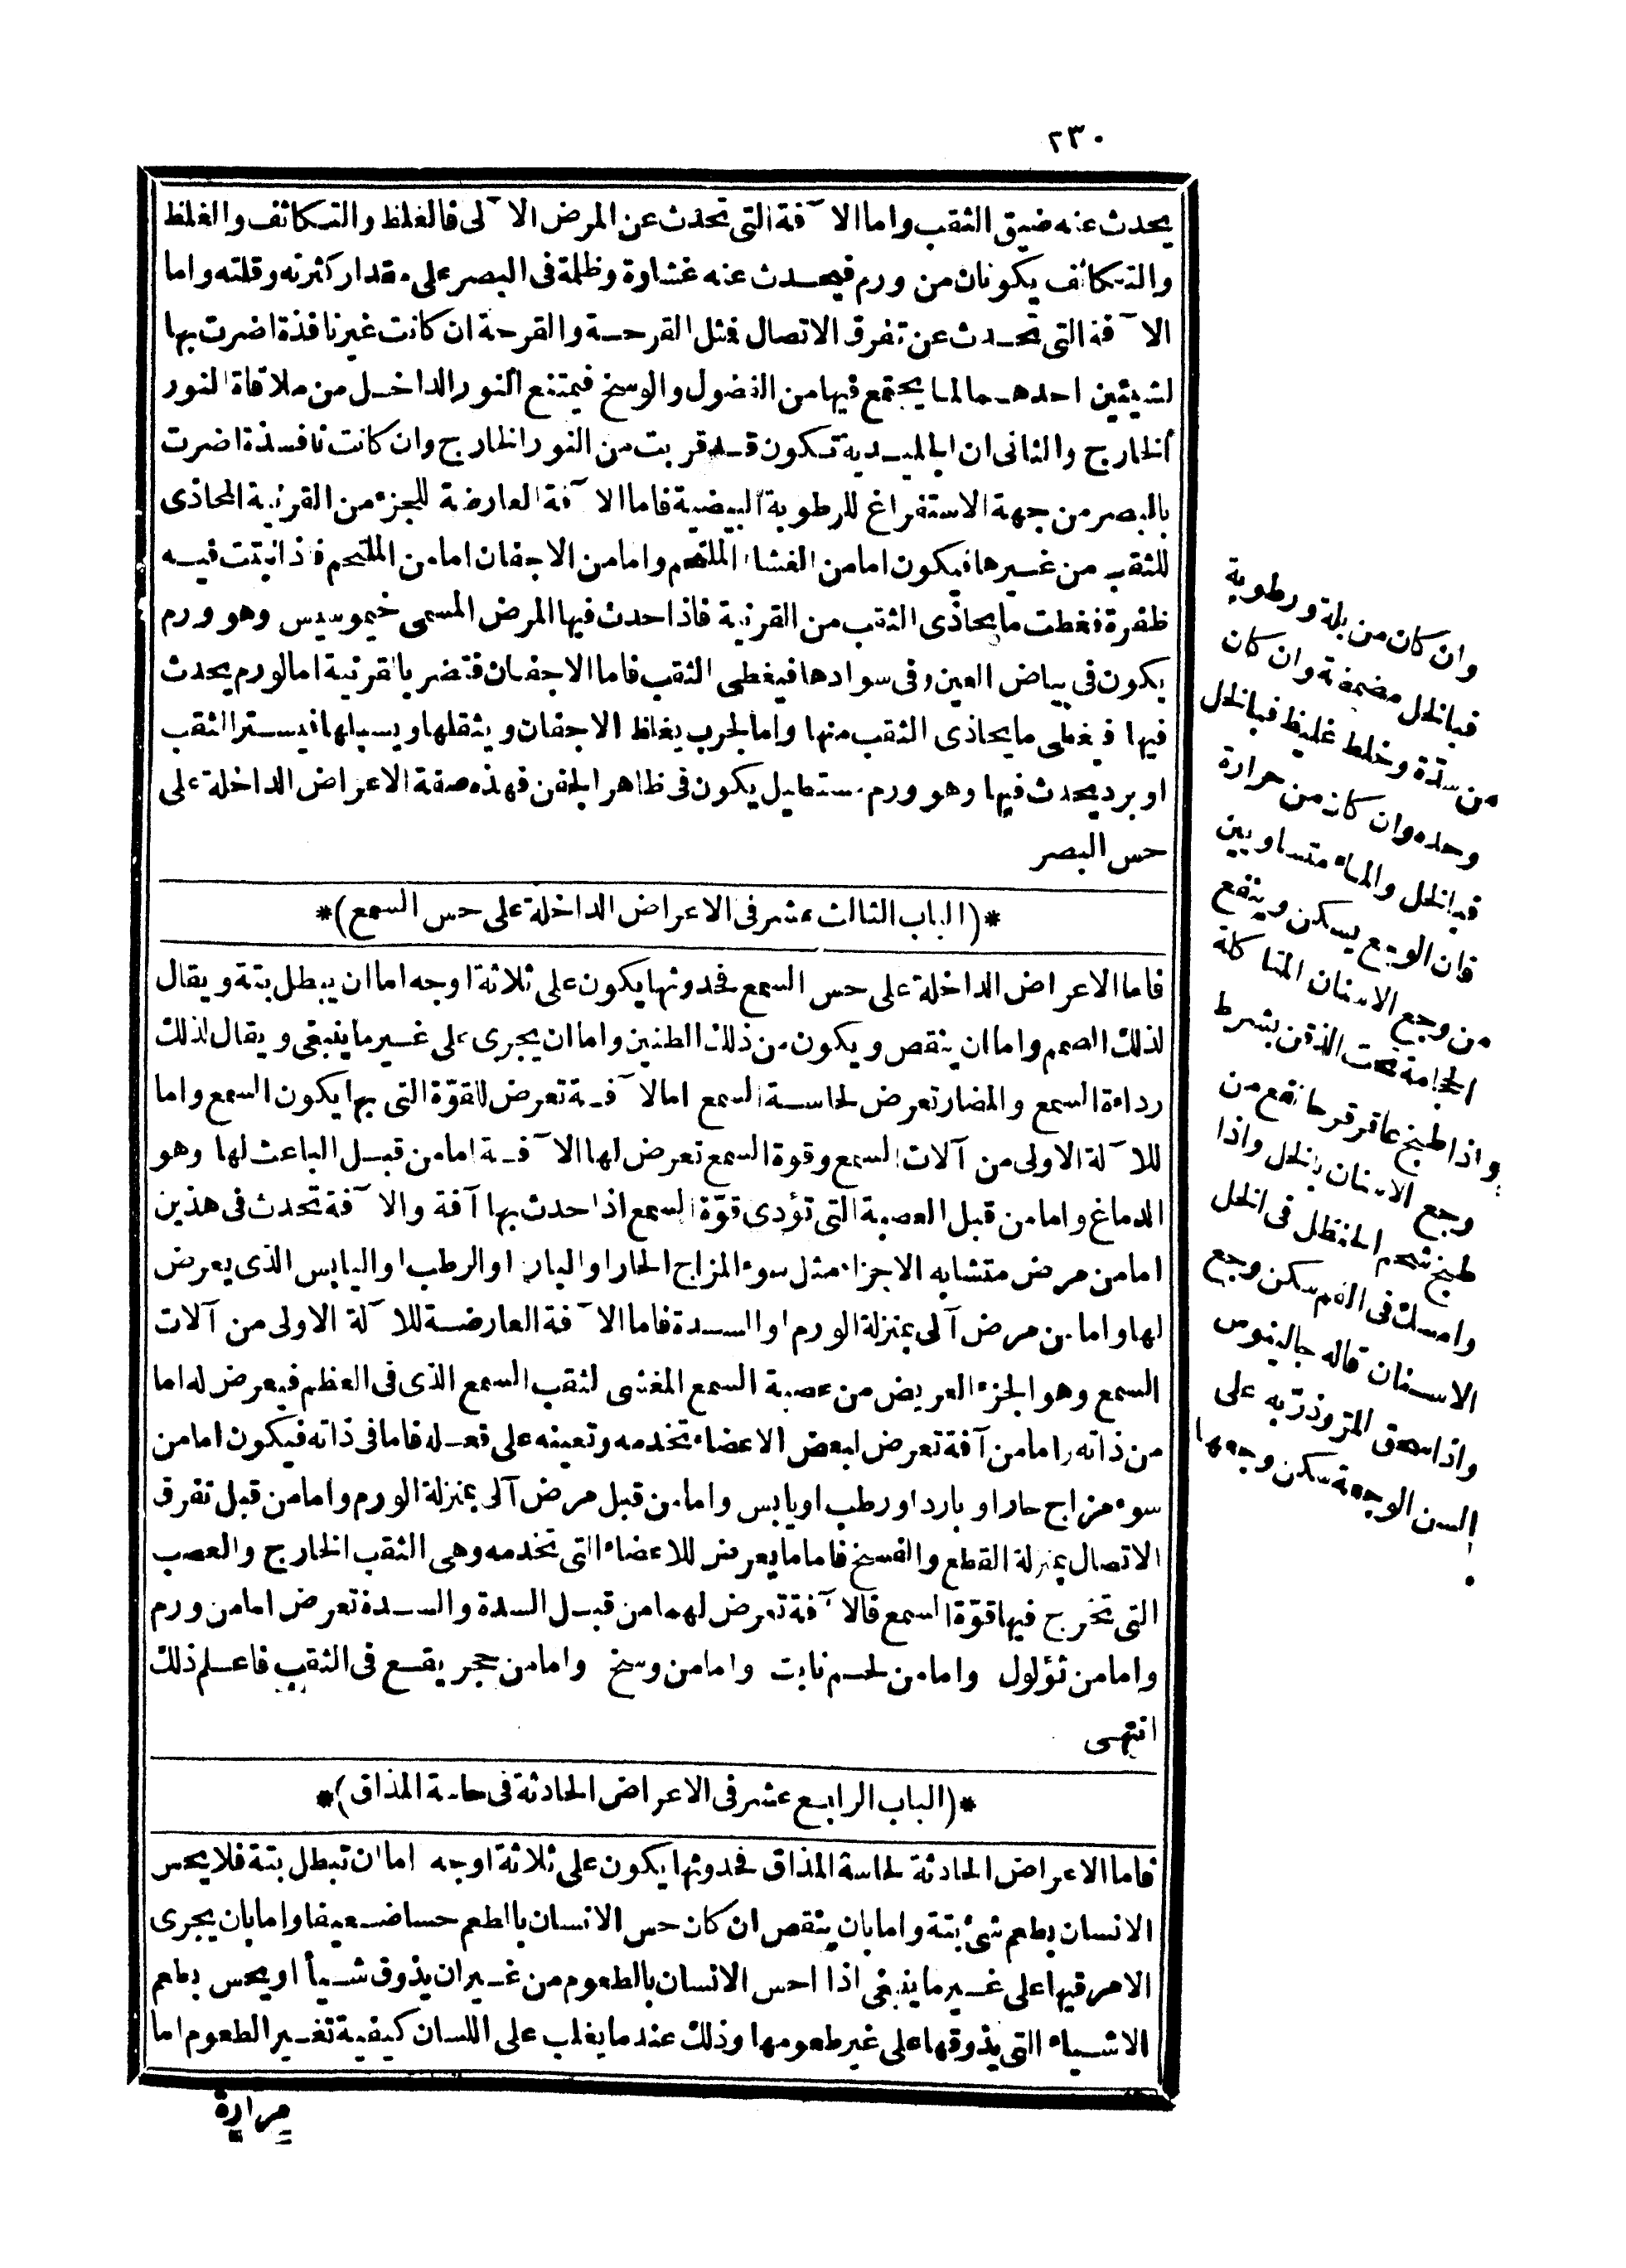 ٢٣٠
يحدث عنه ضيق الثقب واما الآفة التى تحدث عن المرض الآلى فالغلظ والتكاثف والغلظ
والتكاثف يكونان من ورم فيحدث عنه غشاوة وظلمة فى البصر على مقدار كثرته وقلته واما
الآفة التى تحدث عن تفرق الاتصال فمثل القرحة والقرحة ان كانت غير نافذة اضرت بها
لشيئين احدهما لما يجتمع فيها من الفضول والوسخ فيمتنع النور الداخل من ملاقاة النور
الخارج والثانى ان الجليدية تكون قد قربت من النور الخارج وان كانت نافذة اضرت
بالبصر من جهة الاستفراغ للرطوبة البيضية فاما الآفة العارضة للجزء من القرنية المحاذى
للثقب من غيرها فيكون اما من الغشاء الملتحم واما من الاجفان اما من الملتحم فاذا نبتت فيه
ظفرة فغطت ما يحاذى الثقب من القرنية فاذا حدث فيها المرض المسمى خيموسيس وهو ورم
يكون فى بياض العين وفى سوادها فيغطى الثقب فاما الاجفان فتضر بالقرنية اما لورم يحدث
فيها فيغطى ما يحاذى الثقب منها واما لجرب يغلظ الاجفان ويثقلها ويسبلها فيستر الثقب
او برد يحدث فيها وهو ورم مستطيل يكون فى ظاهر الجفن فهذه صفة الاعراض الداخلة على
حس البصر
*(الباب الثالث عشر فى الاعراض الداخلة على حس السمع)*
فاما الاعراض الداخلة على حس السمع فحدوثها يكون على ثلاثة اوجه اما ان يبطل بتة ويقال
لذلك الصمم واما ان ينقص ويكون من ذلك الطنين واما ان يجرى على غير ما ينبغى ويقال لذلك
رداءة السمع والمضار تعرض لحاسة السمع اما لآفة تعرض للقوّة التى بها يكون السمع واما
للآلة الاولى من آلات السمع وقوة السمع تعرض لها الآفة اما من قبل الباعث لها وهو
الدماغ واما من قبل العصبة التى تؤدى قوّة السمع اذا حدث بها آفة والآفة تحدث فى هذين
اما من مرض متشابه الاجزاء مثل سوء المزاج الحار او البارد او الرطب او اليابس الذى يعرض
لها واما من مرض آلى بمنزلة الورم او السدة فاما الآفة العارضة للآلة الاولى من آلات
السمع وهو الجزء العريض من عصبة السمع المغشى لثقب السمع الذى فى العظم فيعرض له اما
من ذاته واما من آفة تعرض لبعض الاعضاء تخدمه وتعينه على فعله فاما فى ذاته فيكون اما من
سوء مزاج حار او بارد او رطب او يابس واما من قبل مرض آلى بمنزلة الورم واما من قبل تفرق
الاتصال بمنزلة القطع والفسخ فاما ما يعرض للاعضاء التى تخدمه وهى الثقب الخارج والعصب
التى تخرج فيها قوّة السمع فالآفة تعرض لهما من قبل السدة والسدة تعرض اما من ورم
واما من ثؤلول واما من لحم نابت واما من وسخ واما من حجر يقع فى الثقب فاعلم ذلك
انتهى
*(الباب الرابع عشر فى الاعراض الحادثة فى حاسة المذاق)*
فاما الاعراض الحادثة لحاسة المذاق فحدوثها يكون على ثلاثة اوجه اما ان تبطل بتة فلا يحس
الانسان بطعم شئ بتة واما بان ينقص ان كان حس الانسان بالطعم حسا ضعيفا واما بان يجرى
الامر فيها على غير ما ينبغى اذا احس الانسان بالطعوم من غير ان يذوق شيأ او يحس بطعم
الاشياء التى يذوقها على غير طعومها وذلك عند ما يغلب على اللسان كيفية تغير الطعوم اما
مرارة
وان كان من بلة ورطوبة
فبالخل مضمضة وان كان
من سدّة وخلط غليظ فبالخل
وحده وان كان من حرارة
فبالخل والماء متساويين
فان الوجع يسكن وينفع
من وجع الاسنان المتاكلة
الحجامة تحت الذقن بشرط
واذا طبخ عاقرقرحا نفع من
وجع الاسنان بالخل واذا
طبخ شحم الحنظل فى الخل
وامسك فى الفم سكن وجع
الاسنان قاله جالينوس
واذا سحق المرّ وذرّ به على
السن الوجعة سكن وجعها